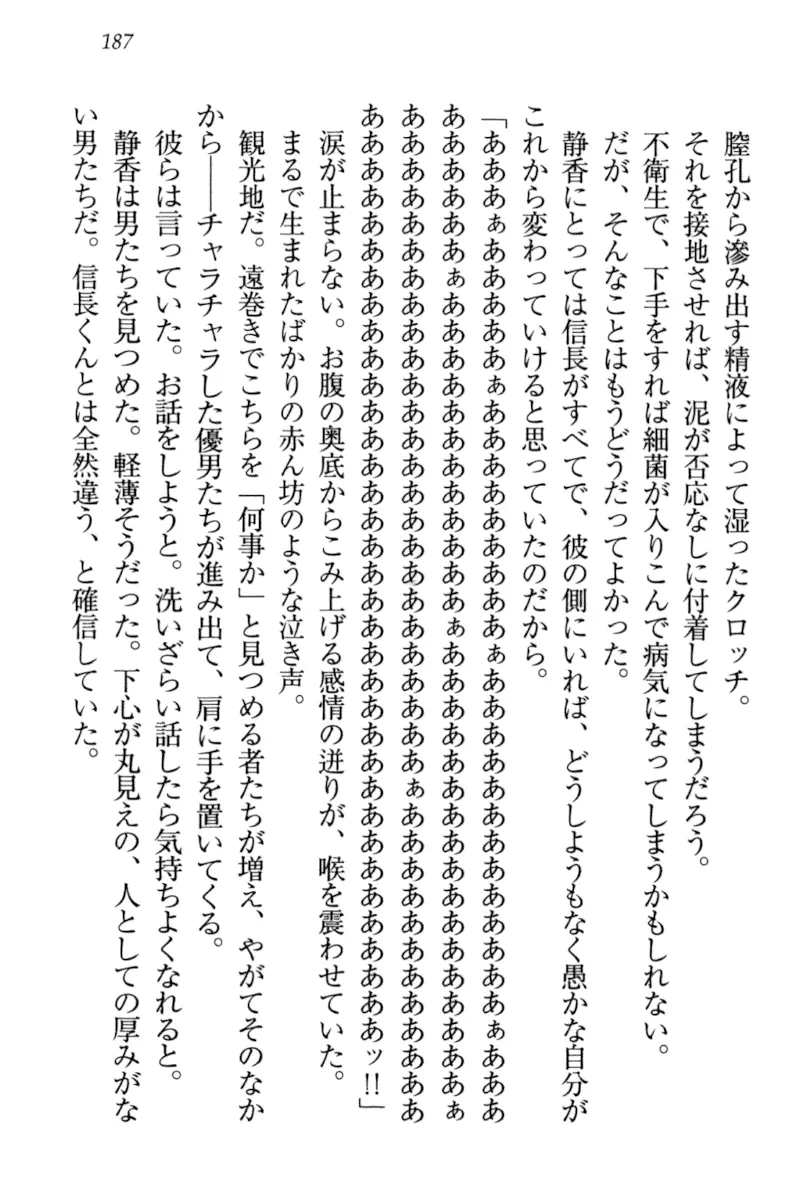 187
膣孔から滲み出す精液によって湿ったクロッチ。
それを接地させれば、泥が否応なしに付着してしまうだろう。
不衛生で、下手をすれば細菌が入りこんで病気になってしまうかもしれない。
だが、そんなことはもうどうだってよかった。
静香にとっては信長がすべてで、彼の側にいれば、どうしようもなく愚かな自分が
これから変わっていけると思っていたのだから。
「あああぁああああああぁああああああああああああぁああああああああああああぁあああ
あああああああぁああああああああああああああぁああああああああああああああああああぁ
あああああああああああああああああああああああああぁあああああああああああああああ
ああああああああああああああああああああああああああああああああああああッ!!」
涙が止まらない。お腹の奥底からこみ上げる感情の迸りが、喉を震わせていた。
まるで生まれたばかりの赤ん坊のような泣き声。
観光地だ。遠巻きでこちらを「何事か」と見つめる者たちが増え、やがてそのなか
から――チャラチャラした優男たちが進み出て、肩に手を置いてくる。
彼らは言っていた。お話をしようと。洗いざらい話したら気持ちよくなれると。
静香は男たちを見つめた。軽薄そうだった。下心が丸見えの、人としての厚みがな
い男たちだ。信長くんとは全然違う、と確信していた。